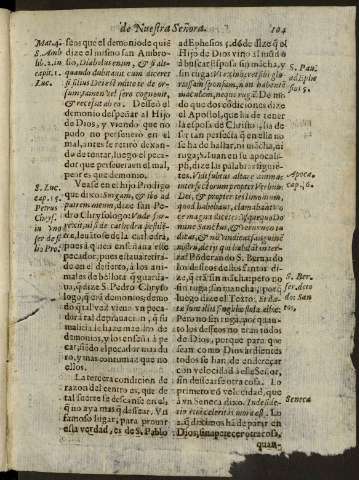 de Nuestra Señora.
104
Mat. 4.
S. Amb
lib. 2. in
capit. 1.
Luc.
seos que el demonio de quiè
dize el mismo san Ambro-
sio, Diabolus enim, & si ali-
quando dubitavit cum diceret
si filius Dei es mitte te de or-
sum tamen vel sero cognovit,
& recesit ab eo. Desseò el
demonio despeñar al Hijo
de Dios, y viendo que no
pudo no perseverò en el
mal, antes se retirò dexan-
do de tentar, luego el peca-
dor que persevera en el mal,
peor es que el demonio.
S. Luc.
cap. 15.
Petrus
Chrys.
in
ser de
Vease en el hijo Prodigo
que dixo: Surgam, & ibo ad
patrem meum, dize san Pe-
dro Chrysologo:
rexit, nisi de cathedra pestile-
tiæ, levãtose de la cathedra,
pues à quiẽ enseñava esse
pecador, pues estava retira-
do en el desierto, à los ani-
males de bellota que guarda-
va, q dize S. Pedro Chryso-
logo, q erã demonios; demo
do q tal vez viene un peca-
dor à tal depravacion, q su
malicia le haze maestro de
demonios, y los enseña à pe-
car, siẽdo el pecador mas du
ro, y mas contumaz que no
ellos.
La tercera condicion de
razon del centro es, que de
tal suerte se descanse en el,
q no aya mas q dessear. Y un
famoso lugar, para provar
essa verdad, es de S. Pablo
ad Ephesios 5. dõde dize q el
Hijo de Dios vino al mũdo
à buscar esposa sin mãcha, y
sin ruga:
riosam sponsam, non habentẽ
maculam, neque rugã. De mo
do que dos condiciones dize
el Apostol, que ha de tener
la esposa de Christo, ha de
ser tan perfecta que en ella no
se ha de hallar, ni mãcha, ni
ruga, y Juan en su apocaly-
psi, dize las palabras siguiẽ-
tes. Vidi subtus altare animas
interfectorum propter Verbum
Dei, & propter testimonium,
quod habebant, clamabant vo
ce magna dicentes
mine Sanctus, & verus non iu
dicas, & nõ vindicas sanguinẽ
nostrũ, de iis qui habitant in ter
ra? Põderando S. Bernardo
los desseos destos santos di-
ze, q està sin mãcha pero no
sin ruga: sin mancha,
luego dize el Texto,
tæ sunt illis singulæ stolæ albæ.
Pero no sin ruga, por quan-
to los desseos no eran todos
de Dios, porque para que
sean como Dios ardientes
todos se han de enderezar
con velocidad à esse Señor,
sin dessear otra cosa. Lo
primero cõ velocidad, que
aun Seneca dixo.
cio etia celeritas mora est. Lo
2. q diximos ha de parar en
Dios, sin apetecer otra cosa,
S. Pau.
ad Ephe
sios 5.
Apoca.
cap. 6.
S. Ber-
ser. de to
dos San
tos.
Seneca
quan-